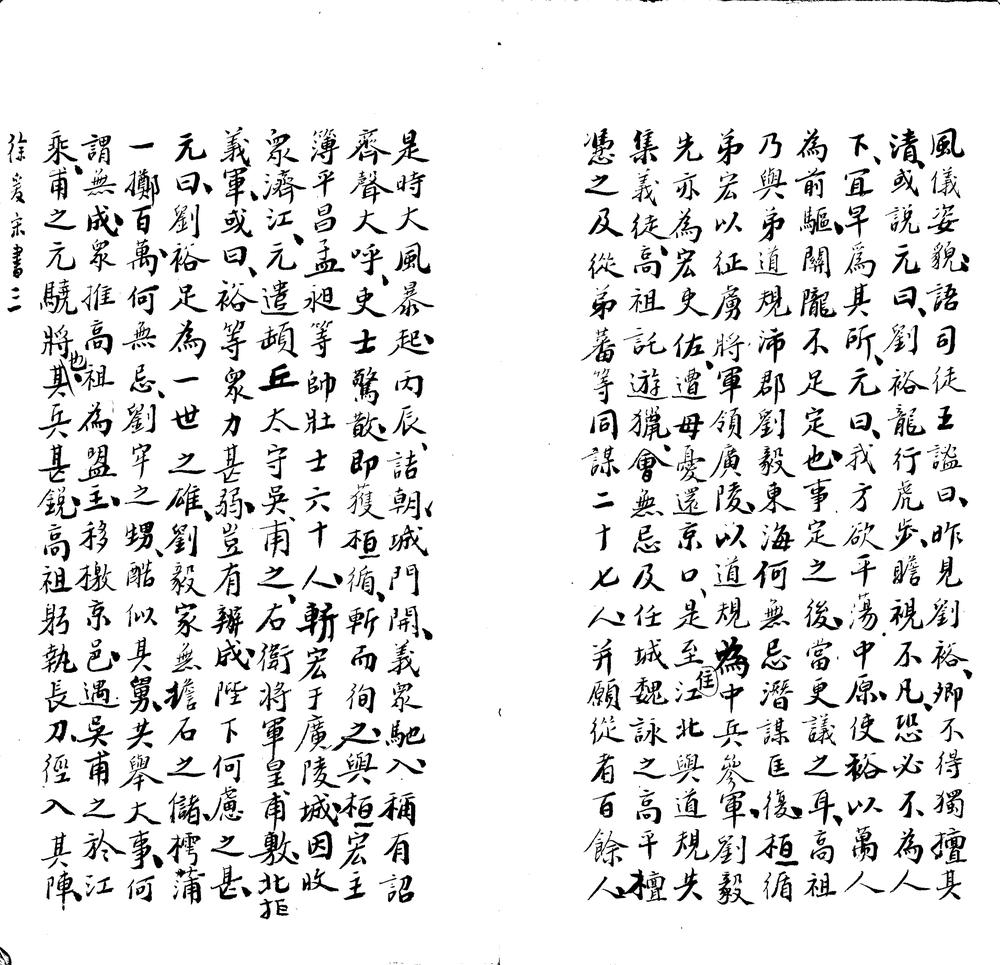 風儀姿貌、語司徒王謐曰、昨見劉裕、卿不得獨擅其
清、或說元曰、劉裕龍行虎步、瞻視不凡、恐必不為人
下、宜早爲其所、元曰、我方欲平蕩中原、使裕以萬人
為前驅、關隴不足定也、事定之後、當更議之耳、高祖
乃與弟道規沛郡劉毅東海何無忌潛謀匡復、桓循
弟宏以征虜將軍領廣陵、以道規為中兵參軍、劉毅
先亦為宏吏佐、遭母憂還京口、是至江北與道規共
集義徒、高祖託遊獵、會無忌及任城魏詠之高平檀
憑之及從弟蕃等同謀二十七人、并願從者百餘人、
是時大風暴起、丙辰、詰朝、城門開、義眾馳入、稱有詔
齊聲大呼、吏士驚散、即獲桓循、斬而徇之、與桓宏主
簿平昌孟昶等帥壯士六十人、斬宏于廣陵城、因收
眾濟江、元遣頓丘太守吳甫之、右衛將軍皇甫敷、北拒
義軍、或曰、裕等眾力甚弱、豈有辦成陛下何慮之甚、
元曰、劉裕足為一世之雄、劉毅家無擔石之儲、樗蒲
一擲百萬、何無忌、劉牢之甥、酷似其舅、共舉大事、何
謂無成、眾推高祖為盟主、移檄京邑、遇吳甫之於江
乘、甫之元驍將也、其兵甚銳、高祖躬執長刀、徑入其陣、
徐爰宋書 三